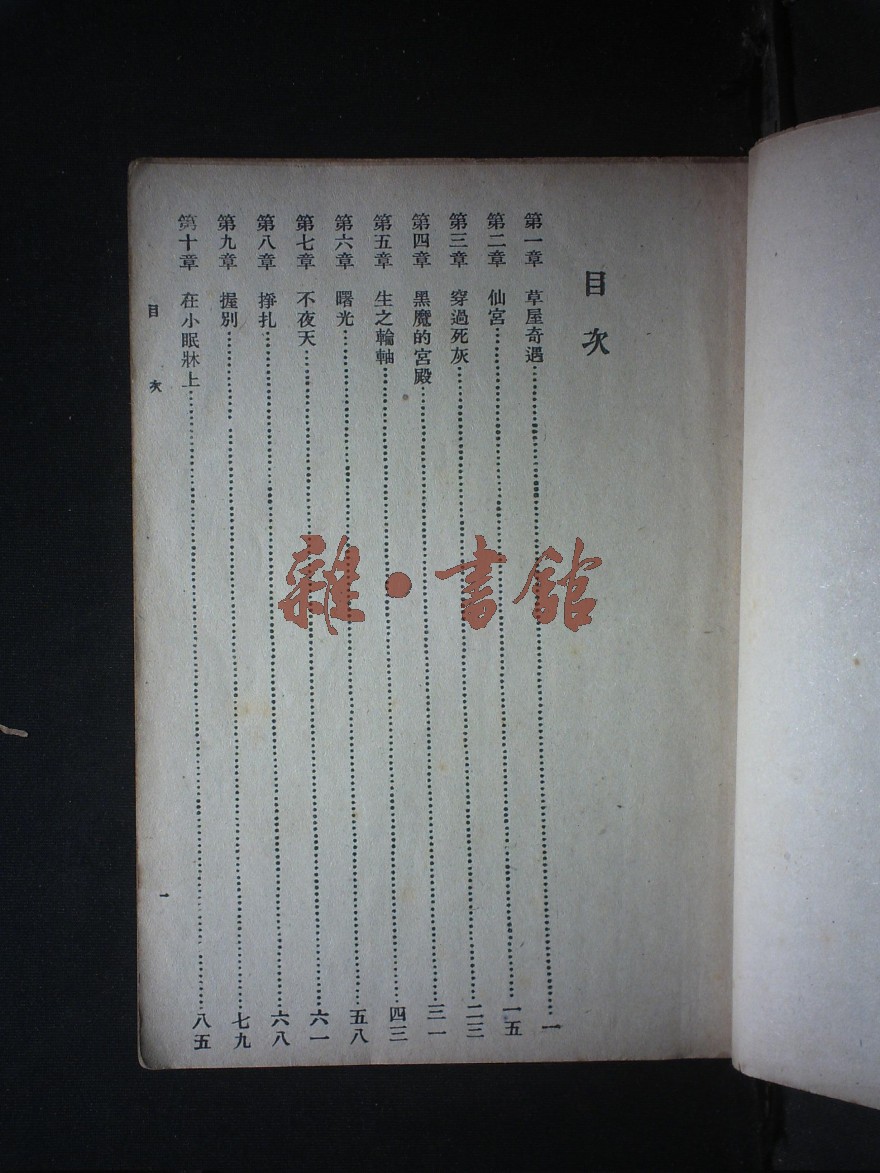 目次
第一章 草屋奇遇……一
第二章 仙宮……一五
第三章 穿過死灰……二三
第四章 黑魔的宮殿……三一
第五章 生之輪軸……四三
第六章 曙光……五八
第七章 不夜天……六一
第八章 掙扎……六八
第九章 握別……七九
第十章 在小眠牀上……八五
目次
一
雜·書館